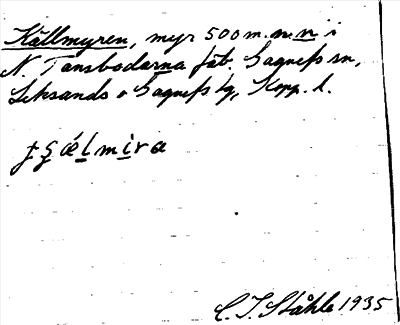 Källmyren, myr 500 m. n. n i
N. Tansbodarna fäb. Gagnefs sn,
Leksands o Gagnefs tg, Kopp. l.
C. I. Ståhle 1935